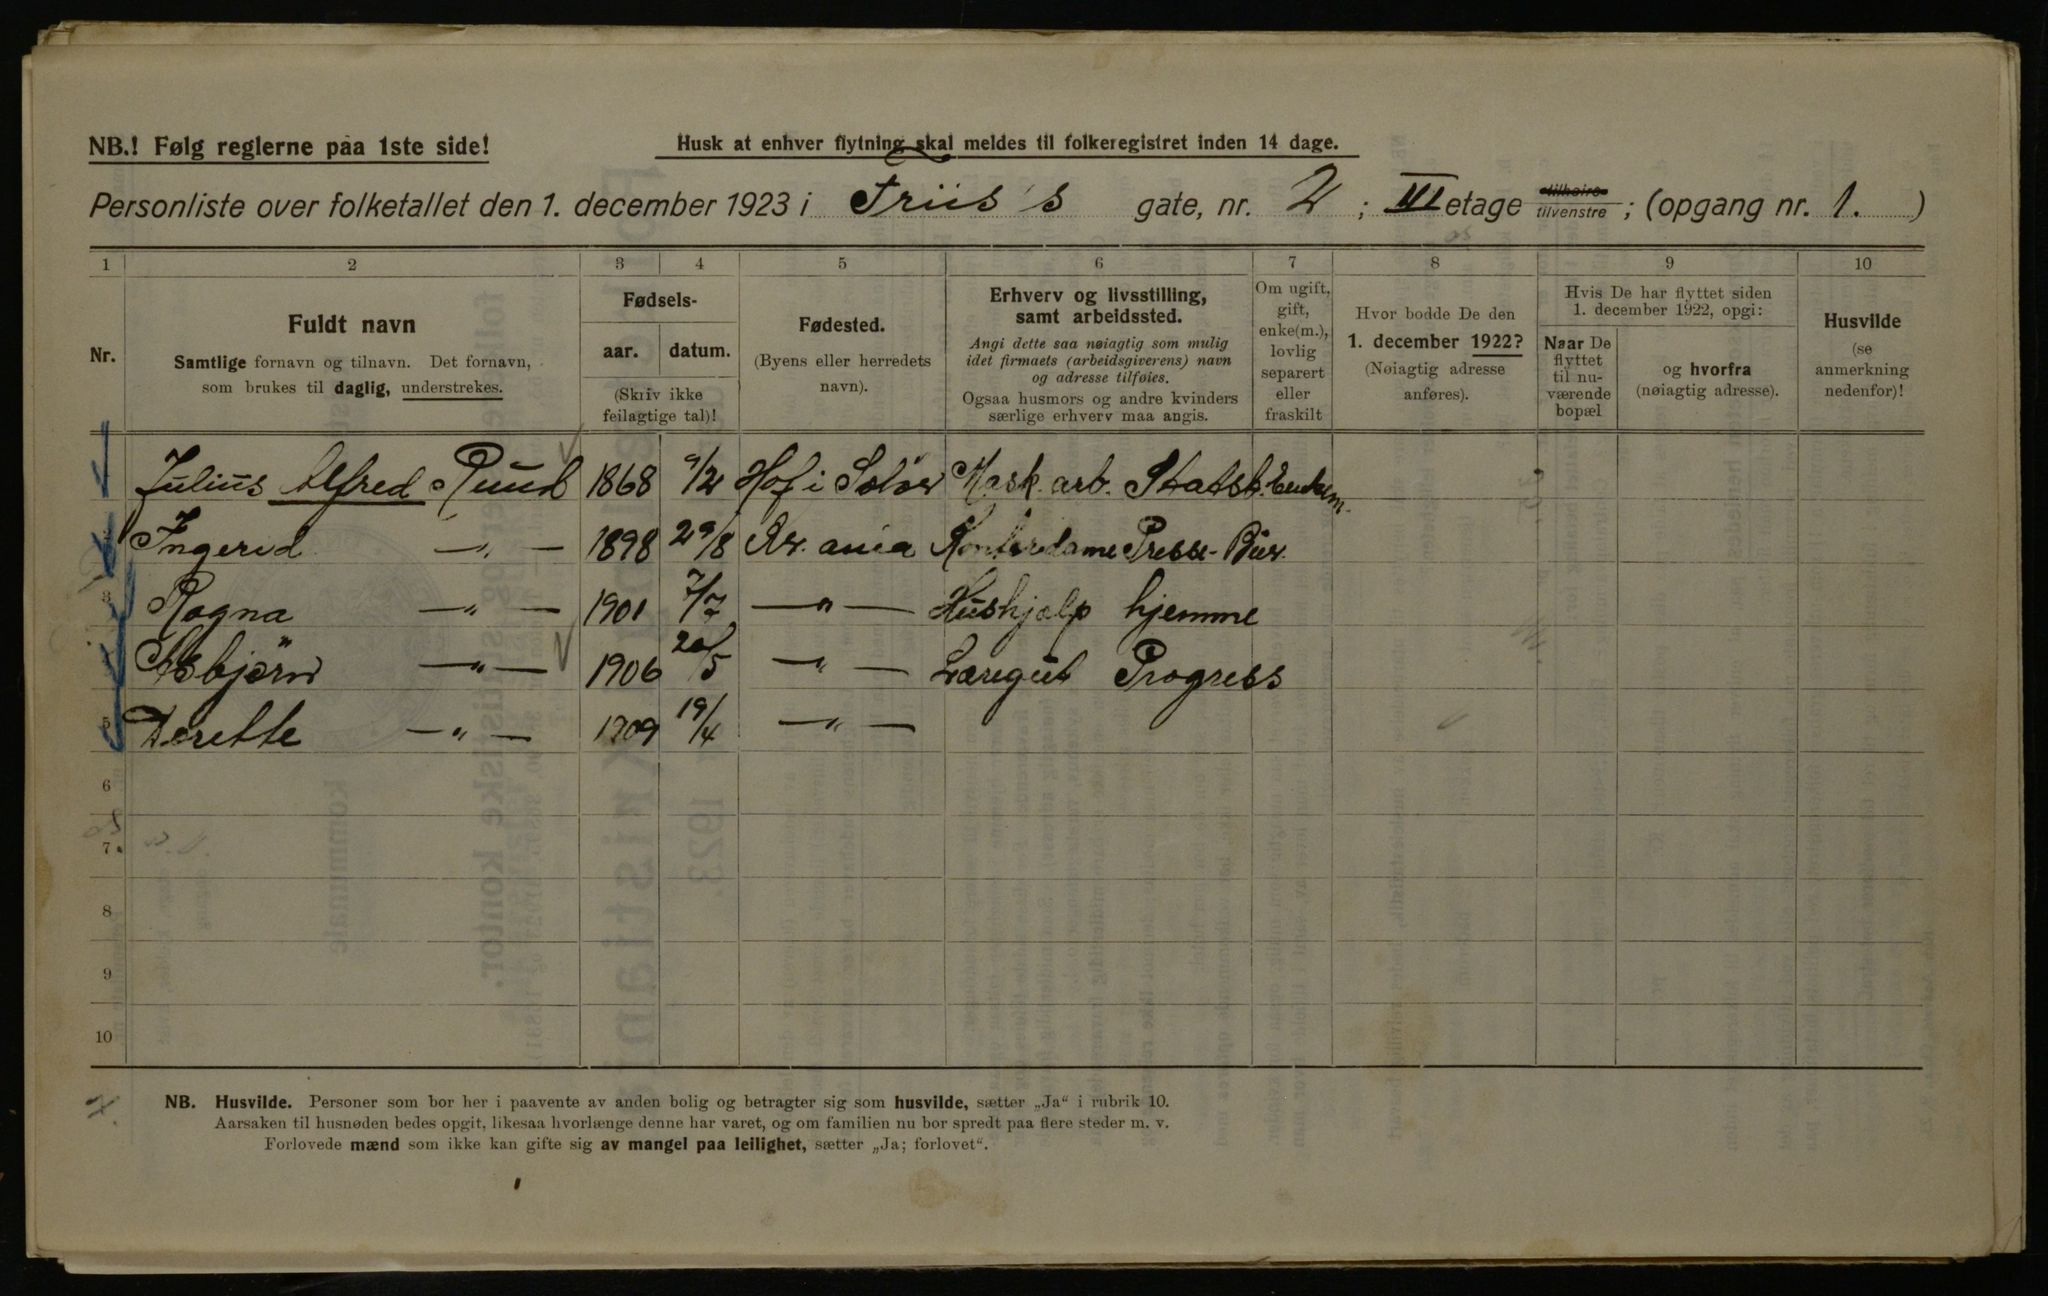 NB.! Følg reglerne paa 1ste side!
Husk at enhver flytning skal meldes til folkeregistret inden 14 dage.
Personliste over folketallet den 1. december 1923 i Friis's gate, nr. 2 ; III etage tilhøire tilvenstre ; (opgang nr. 1. )
1 2 3 4 5 6 7 8 9 10
Nr.
Fuldt navn
Samtlige fornavn og tilnavn. Det fornavn,
som brukes til daglig, understrekes.
Fødsels-
aar. datum.
(Skriv ikke
feilagtige tal)!
Fødested.
(Byens eller herredets
navn).
Erhverv og livsstilling,
samt arbeidssted.
Angi dette saa nøiagtig som mulig
idet firmaets (arbeidsgiverens) navn
og adresse tilføies.
Ogsaa husmors og andre kvinders
særlige erhverv maa angis.
Om ugift,
gift,
enke(m.),
lovlig
separert
eller
fraskilt
Hvor bodde De den
1. december 1922?
(Nøiagtig adresse
anføres).
Hvis De har flyttet siden
1. december 1922, opgi:
Naar De
flyttet
til nu-
værende
bopæl
og hvorfra
(nøiagtig adresse).
Husvilde
(se
anmerkning
nedenfor)!
Julius Alfred Ruud 1868 9/2 Hof i Solør Mask. arb. Statsb. Enkem.
Ingerid —„— 1898 29/8 Kr.ania Kontordame Presse-Bur.
3 Ragna —„— 1901 7/7 —„— Hushjælp hjemme
Asbjørn —„— 1906 20/5 —„— Læregut Progress
5 Derette —„— 1909 19/4 —„—
6
7
8
9
10
NB. Husvilde. Personer som bor her i paavente av anden bolig og betragter sig som husvilde, sætter „Ja“ i rubrik 10.
Aarsaken til husnøden bedes opgit, likesaa hvorlænge denne har varet, og om familien nu bor spredt paa flere steder m. v.
Forlovede mænd som ikke kan gifte sig av mangel paa leilighet, sætter „Ja; forlovet“.